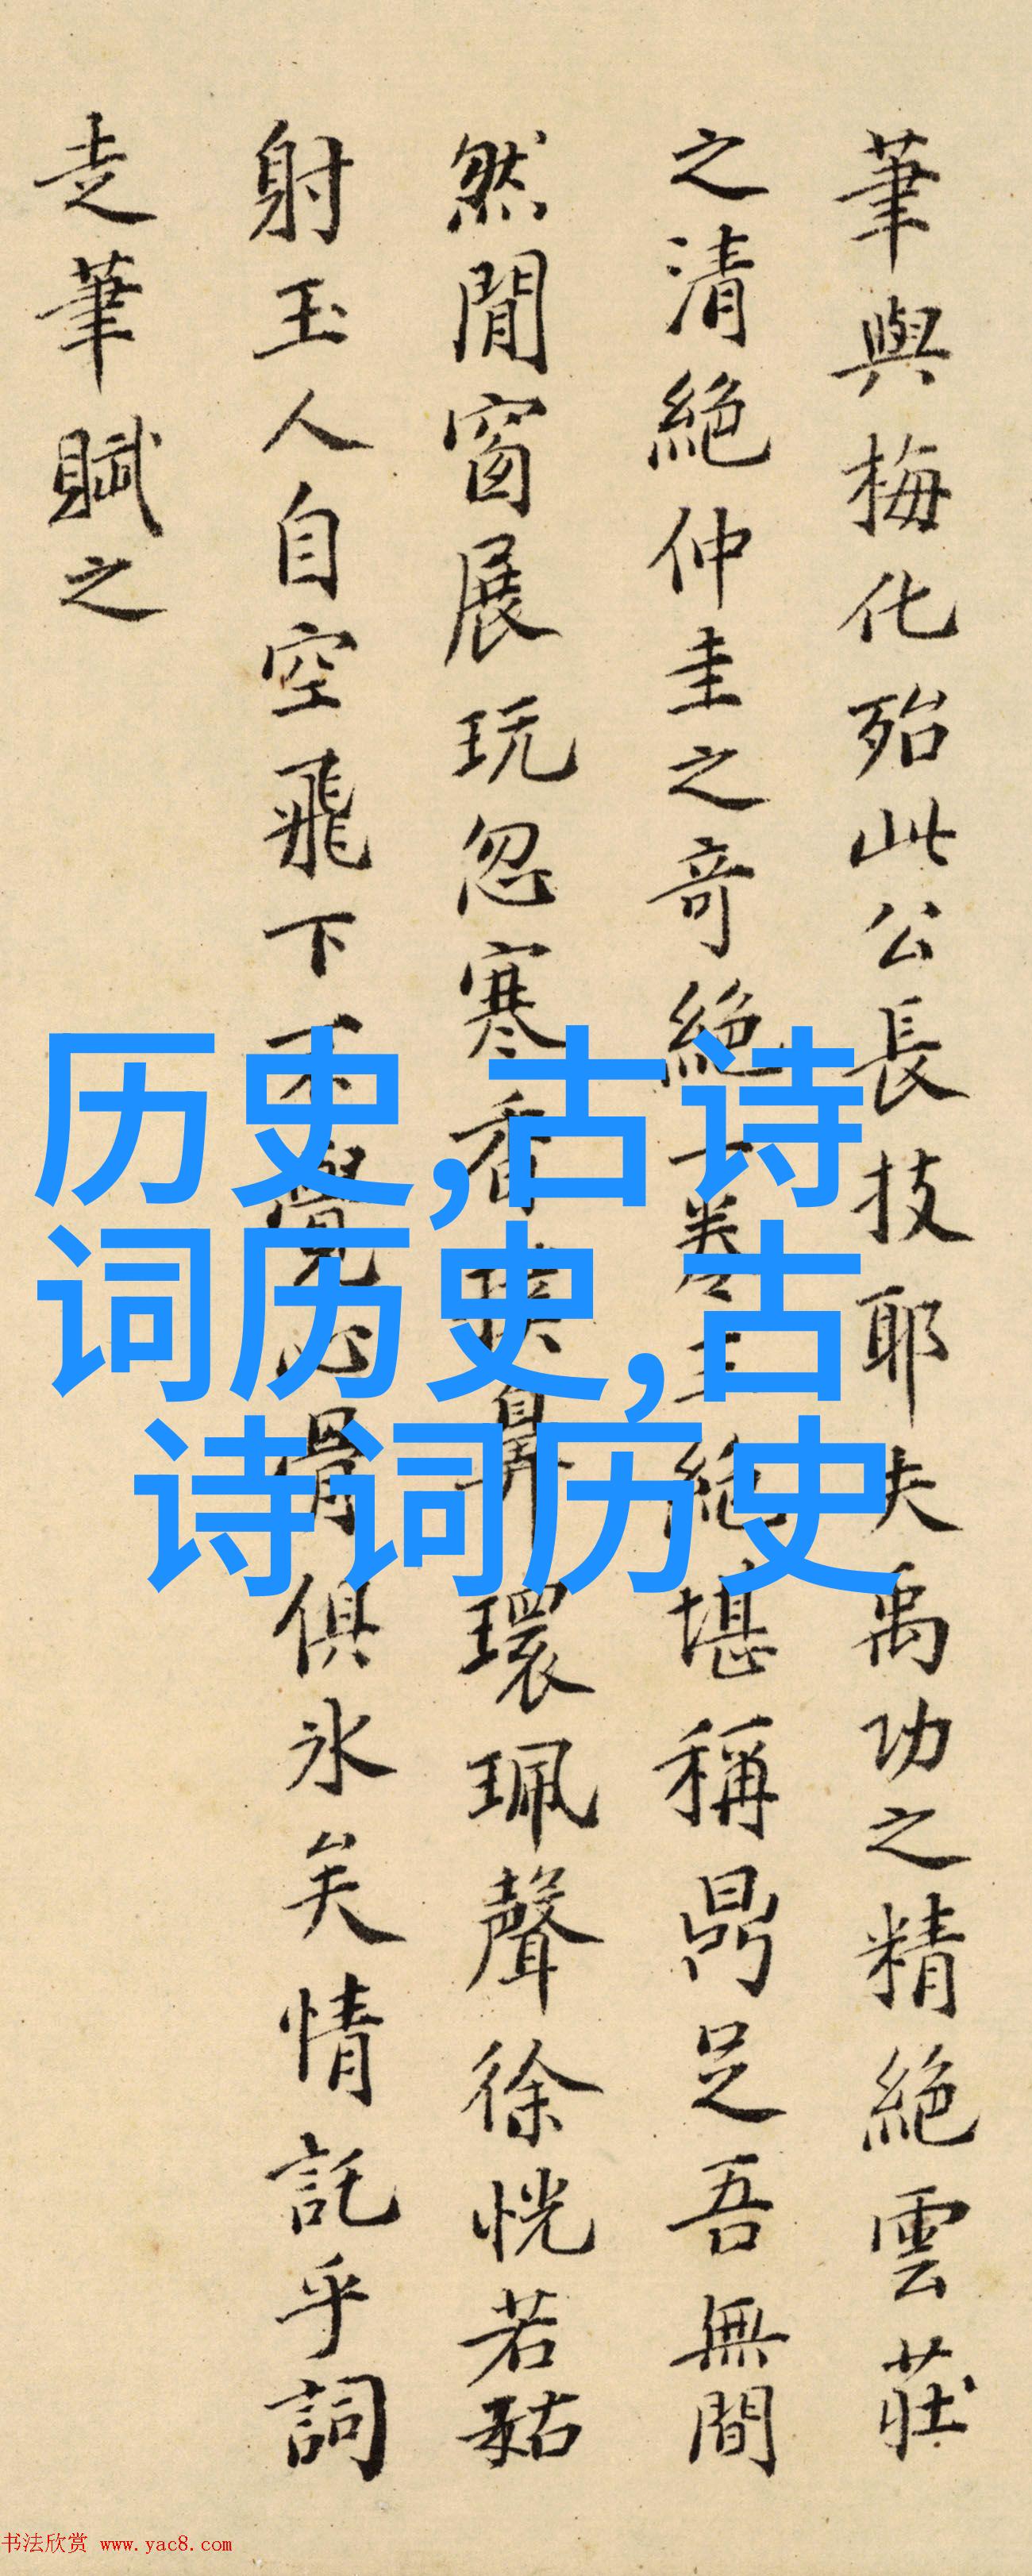 筆與梅化殆此公長技耶夫禹功之精絕雲莊
之清絕仲圭之奇絕一卷三絕堪稱鼎足吾無間
然閒窗展玩忽寒香撲鼻環珮聲徐恍若姑
射玉人自空飛下不覺心骨俱冰矣情託乎詞
走筆賦之
历史,古诗
词历史,古
诗词历史
书法欣赏 www.yac8.com